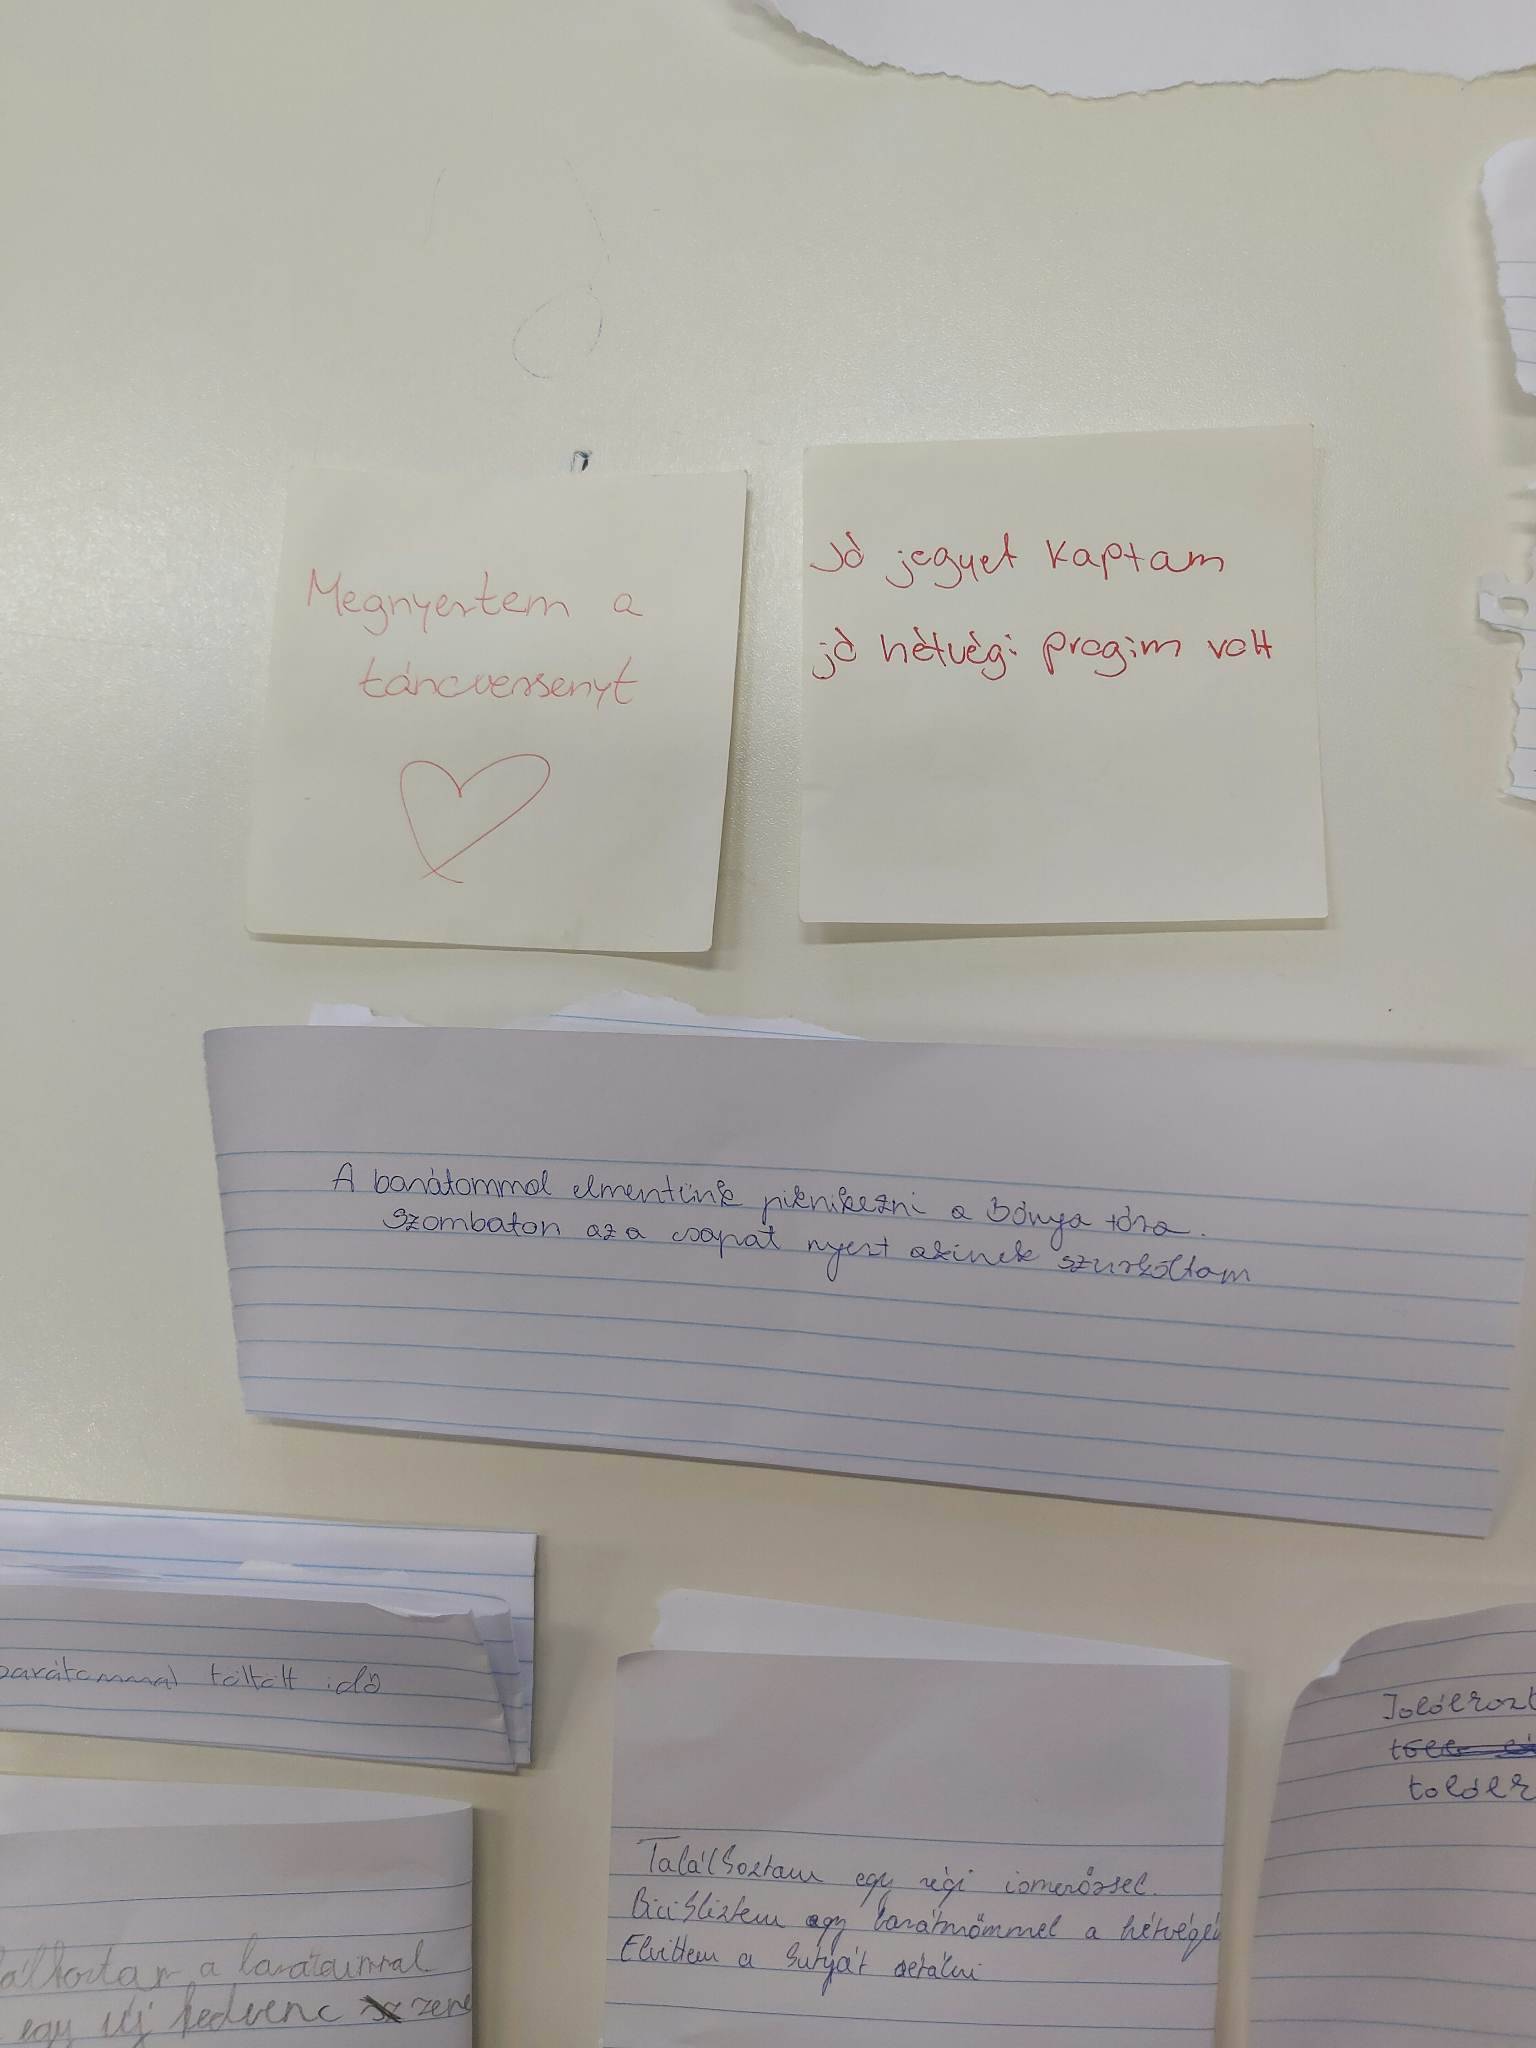 Megnyertem a
táncversenyt
Jó jegyet kaptam
jó hétvégi progim volt
A barátommal elmentünk piknikezni a Bánya tóra.
Szombaton az a csapat nyert akinek szurkoltam
barátommal töltött idő
Találkoztam egy régi ismerőssel.
Bicikliztem egy barátnőmmel a hétvégén
Elvittem a kutyát sétálni
Találkozt
találk
álkoztam a barátaimmal
egy új kedvenc zene